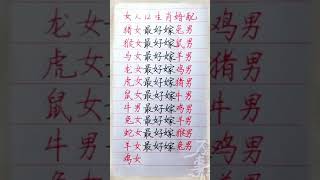 女人12生肖婚配
猪女最好嫁兔男
猴女最好嫁鼠男
马女最好嫁羊男
龙女最好嫁鸡男
虎女最好嫁猪男
鼠女最好嫁牛男
牛男最好嫁鸡男
兔女最好嫁羊男
蛇女最好嫁猴男
羊女最好嫁兔男
鸡女
龙女
虎女
鼠女
牛男
鸡男
猪男
牛男
鸡男